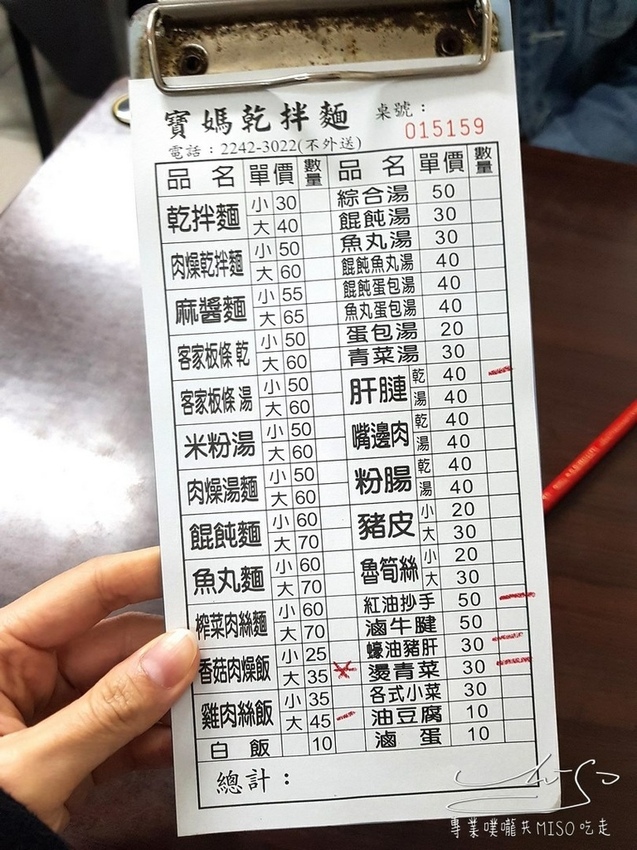 寶媽乾拌麵 桌號：
015159
電話：2242-3022(不外送)
品名 單價 數量 品名 單價 數量
乾拌麵 小 30
大 40
肉燥乾拌麵 小 50
大 60
麻醬麵 小 55
大 65
客家板條 乾 小 50
大 60
客家板條 湯 小 50
大 60
米粉湯 小 50
大 60
肉燥湯麵 小 50
大 60
餛飩麵 小 60
大 70
魚丸麵 小 60
大 70
榨菜肉絲麵 小 60
大 70
香菇肉燥飯 小 25
大 35
雞肉絲飯 小 35
大 45
白飯 10
綜合湯 50
餛飩湯 30
魚丸湯 30
餛飩魚丸湯 40
餛飩蛋包湯 40
魚丸蛋包湯 40
蛋包湯 20
青菜湯 30
肝腱 乾 40
湯 40
嘴邊肉 乾 40
湯 40
粉腸 乾 40
湯 40
豬皮 小 20
大 30
魯筍絲 小 20
大 30
紅油抄手 50
滷牛腱 50
蠔油豬肝 30
燙青菜 30
各式小菜 30
油豆腐 10
滷蛋 10
總計：
專業噗嚨共MISO吃走